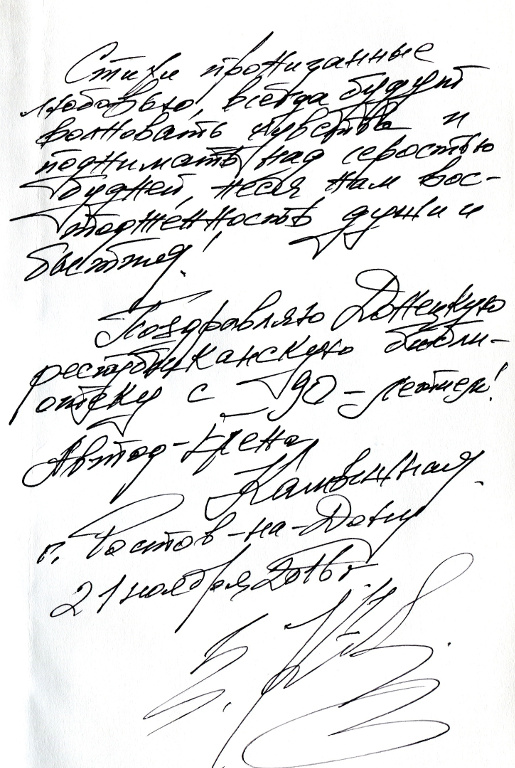 Стихи пронизанные
любовью, всегда будут
волновать чувства и
поднимать над серостью
будней, неся нам вос-
торженность души и
бытия!
Поздравляю Донецкую
республиканскую библи-
отеку с 90-летием!
Автор - Ирена
г. Ростов-на-Дону
21 ноября 2016г